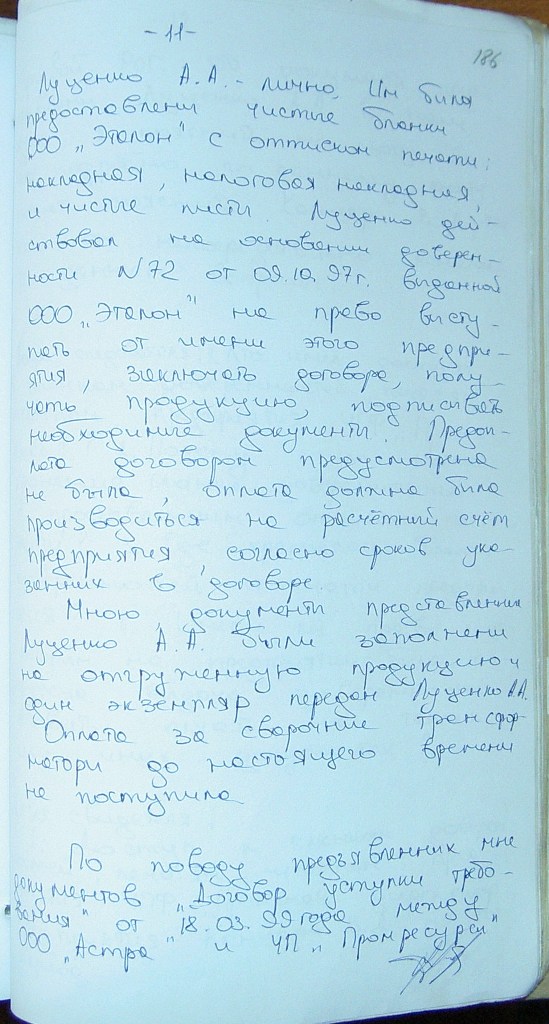 -11-
186
Луценко А.А. - лично. Им были
предоставлены чистые бланки
ООО „Эталон" с оттиском печати:
накладная, налоговая накладная,
и чистые листы. Луценко дей-
ствовал на основании доверен-
ности N72 от 09.10.97г. выданной
ООО „Эталон" на право высту-
пать от имени этого предпри-
ятия, заключать договора, полу-
чать продукцию, подписывать
необходимые документы. Предоп-
лата договором предусмотрена
не была, оплата должна была
производиться на расчётный счёт
предприятия, согласно сроков ука-
занных в договоре.
Мною, документы представленные
Луценко А.А. были заполнены
на отгруженную продукцию и
один экземпляр передан Луценко А.А.
Оплата за сварочные трансфор-
маторы до настоящего времени
не поступила
По поводу предъявленных мне
документов „Договор уступки требо-
вания" от 18.03.99 года между
ООО „Астра" и ЧП „Промресурсы"